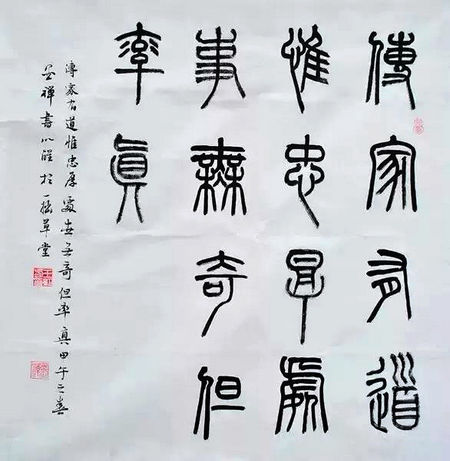 傳家有道
惟忠厚處
事無奇但
率眞
傳家有道惟忠厚處世无奇但率真甲午之春
安禪書於一草堂